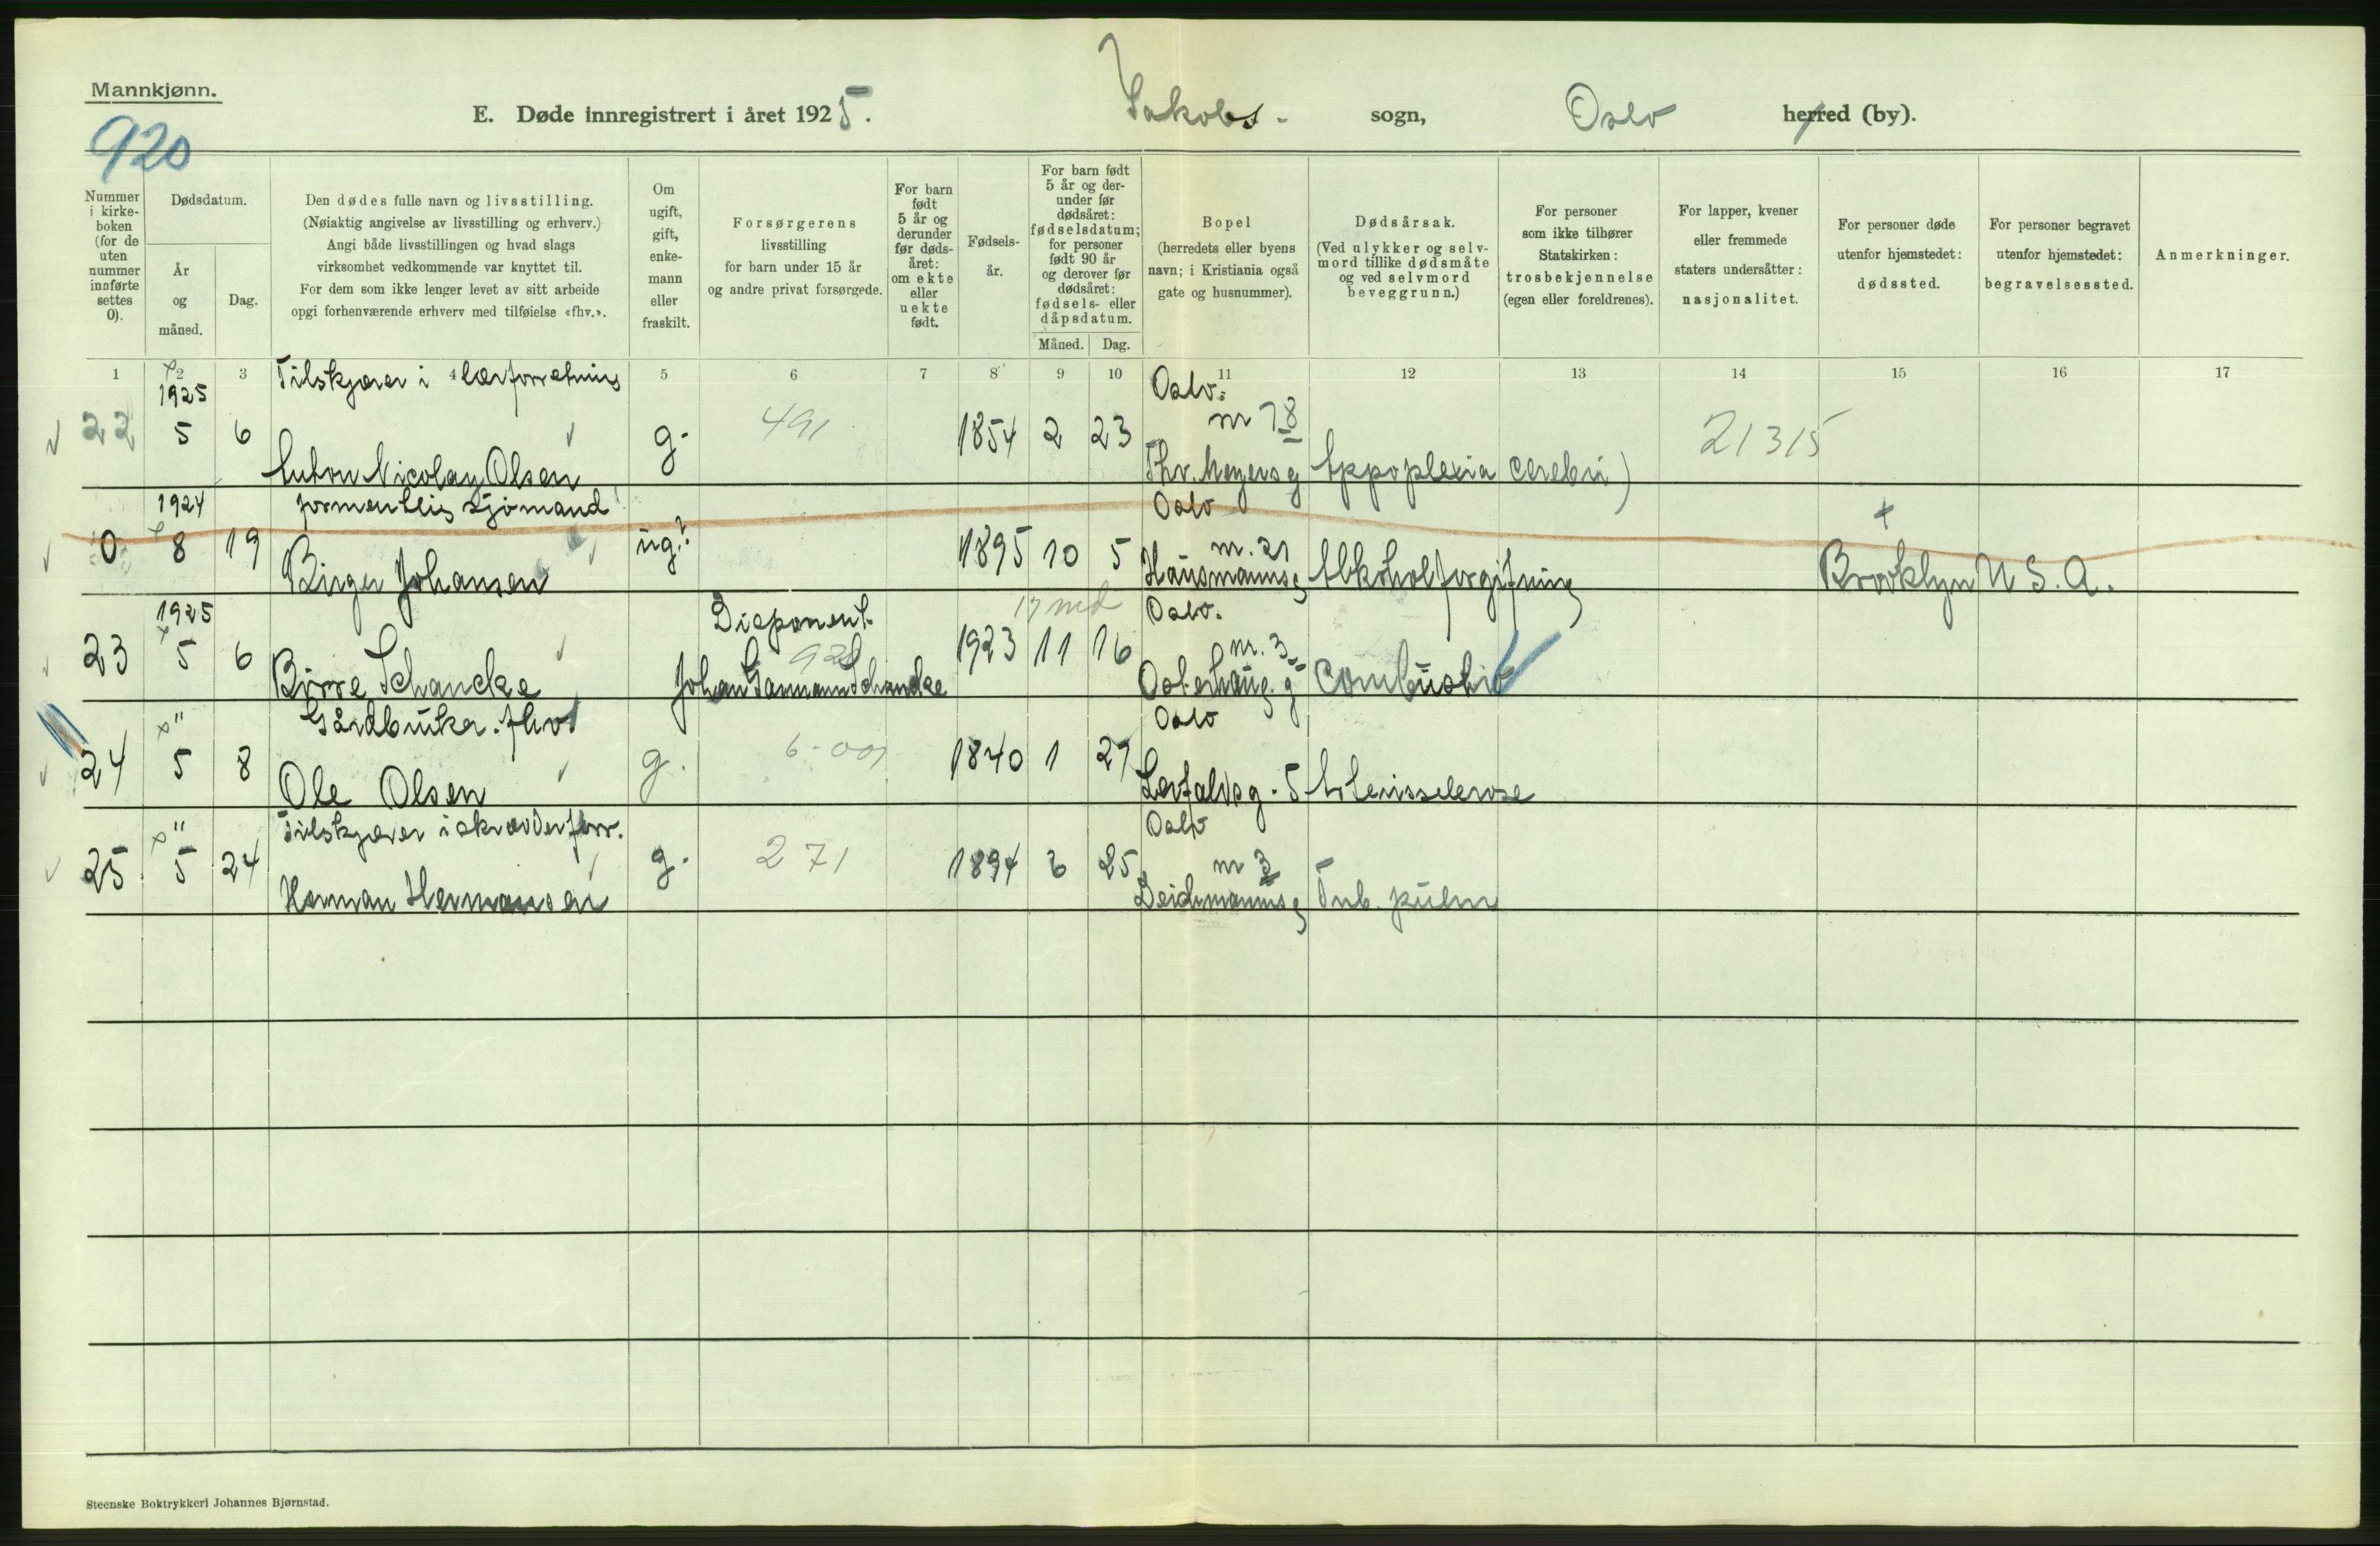 Mannkjønn.
920
E. Døde innregistrert i året 1925.
Jakobs - sogn, Oslo herred (by).
Nummer i kirke- boken (for de uten nummer innførte settes 0).
Dødsdatum.
År og måned.
Dag.
Den dødes fulle navn og livsstilling.
(Nøiaktig angivelse av livsstilling og erhverv.)
Angi både livsstillingen og hvad slags
virksomhet vedkommende var knyttet til.
For dem som ikke lenger levet av sitt arbeide
opgi forhenværende erhverv med tilføielse «fhv.».
Om ugift, gift, enke- mann eller fraskilt.
Forsørgerens
livsstilling
for barn under 15 år
og andre privat forsørgede.
For barn født 5 år og derunder før døds- året: om ekte eller uekte født.
Fødsels- år.
For barn født 5 år og der- under før dødsåret: fødselsdatum; for personer født 90 år og derover før dødsåret: fødsels- eller dåpsdatum.
Måned. Dag.
Bopel
(herredets eller byens
navn; i Kristiania også
gate og husnummer).
Dødsårsak.
(Ved ulykker og selv-
mord tillike dødsmåte
og ved selvmord
beveggrunn.)
For personer
som ikke tilhører
Statskirken:
trosbekjennelse
(egen eller foreldrenes).
For lapper, kvener
eller fremmede
staters undersåtter:
nasjonalitet.
For personer døde
utenfor hjemstedet:
dødssted.
For personer begravet
utenfor hjemstedet:
begravelsessted.
Anmerkninger.
1 2 3 4 5 6 7 8 9 10 11 12 13 14 15 16 17
1925 Tilskjærer i lærforretning Oslo.
22 5 6 g. 491 1854 2 23 nr 78 21315
Anton Nicolay Olsen Thv. Meyersg Appoplexia cerebri)
1924 formentlig sjømand Oslo
0 8 19 ug.? 1895 10 5 nr. 21 +
Birger Johansen Hausmannsg Alkoholforgiftning Brooklyn U.S.A.
1925 Disponent. 17 md Oslo.
23 5 6 920 1923 11 16 nr. 3
Børre Schancke Johan Garmann Schancke Osterhausg. Combustio
" Gårdbruker. fhv. Oslo
24 5 8 g. 6-001 1840 1 27
Ole Olsen Leirfaldsg. 5 Arteriosclerose
" Tilskjærer i skrædderforr. Oslo
25 5 24 g. 271 1894 6 25 nr 3
Herman Hermansen Deichmannsg Tub. pulm
Steenske Boktrykkeri Johannes Bjørnstad.